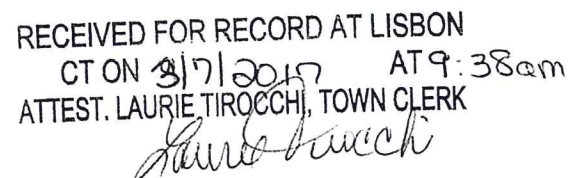 RECEIVED FOR RECORD AT LISBON
CT ON 3/7/2017 AT 9:38am
ATTEST. LAURIE TIROCCHI, TOWN CLERK
Laurie Tirocchi